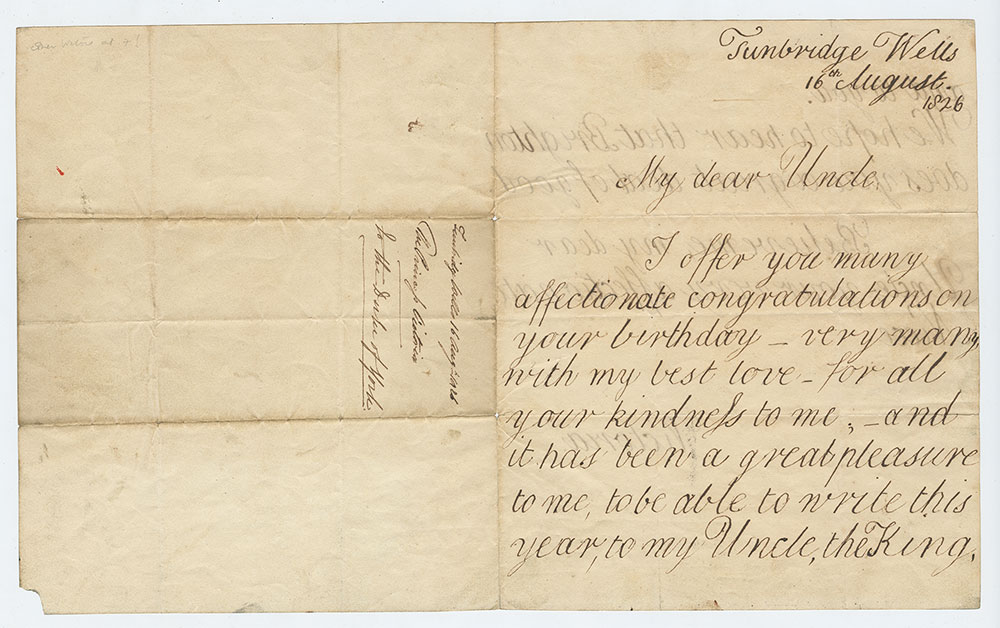 Tunbridge Wells
16th August.
1826
My dear Uncle
I offer you many
affectionate congratulations on
your birthday – very many,
with my best love – for all
your kindneſs to me; – and
it has been a great pleasure
to me, to be able to write this
year, to my Uncle, the King.
We hope to hear that Brighton
does your
good
Believe me my dear
Tunbridge Wells 16 Augt 1826
The Princeſs Victoria
To the Duke of York.